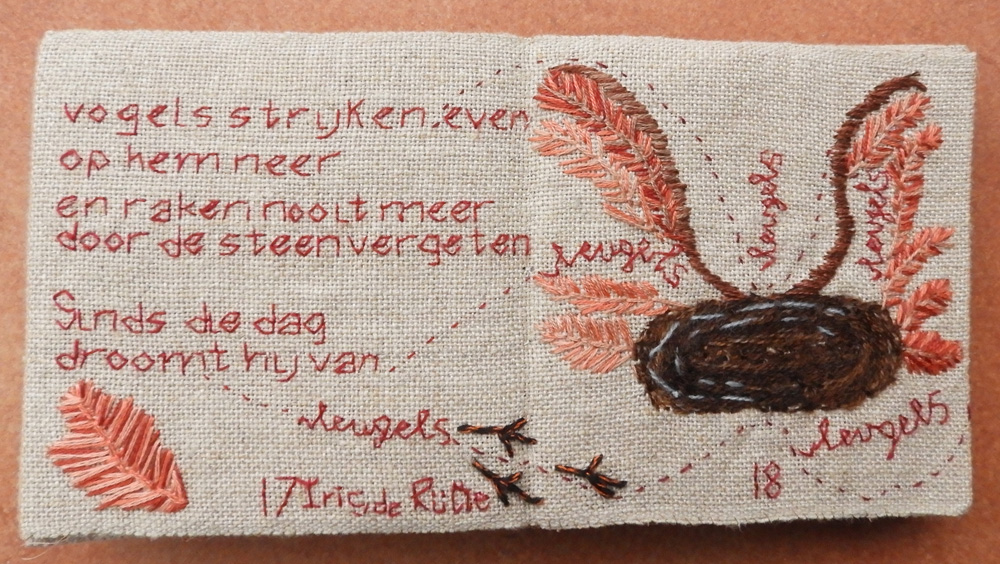 vogels strijken even
op hem neer
en raken nooit meer
door de steen vergeten
Sinds die dag
droomt hij van
vleugels
17 Iris de Rütte
vleugels
vleugels
vleugels
vleugels
18